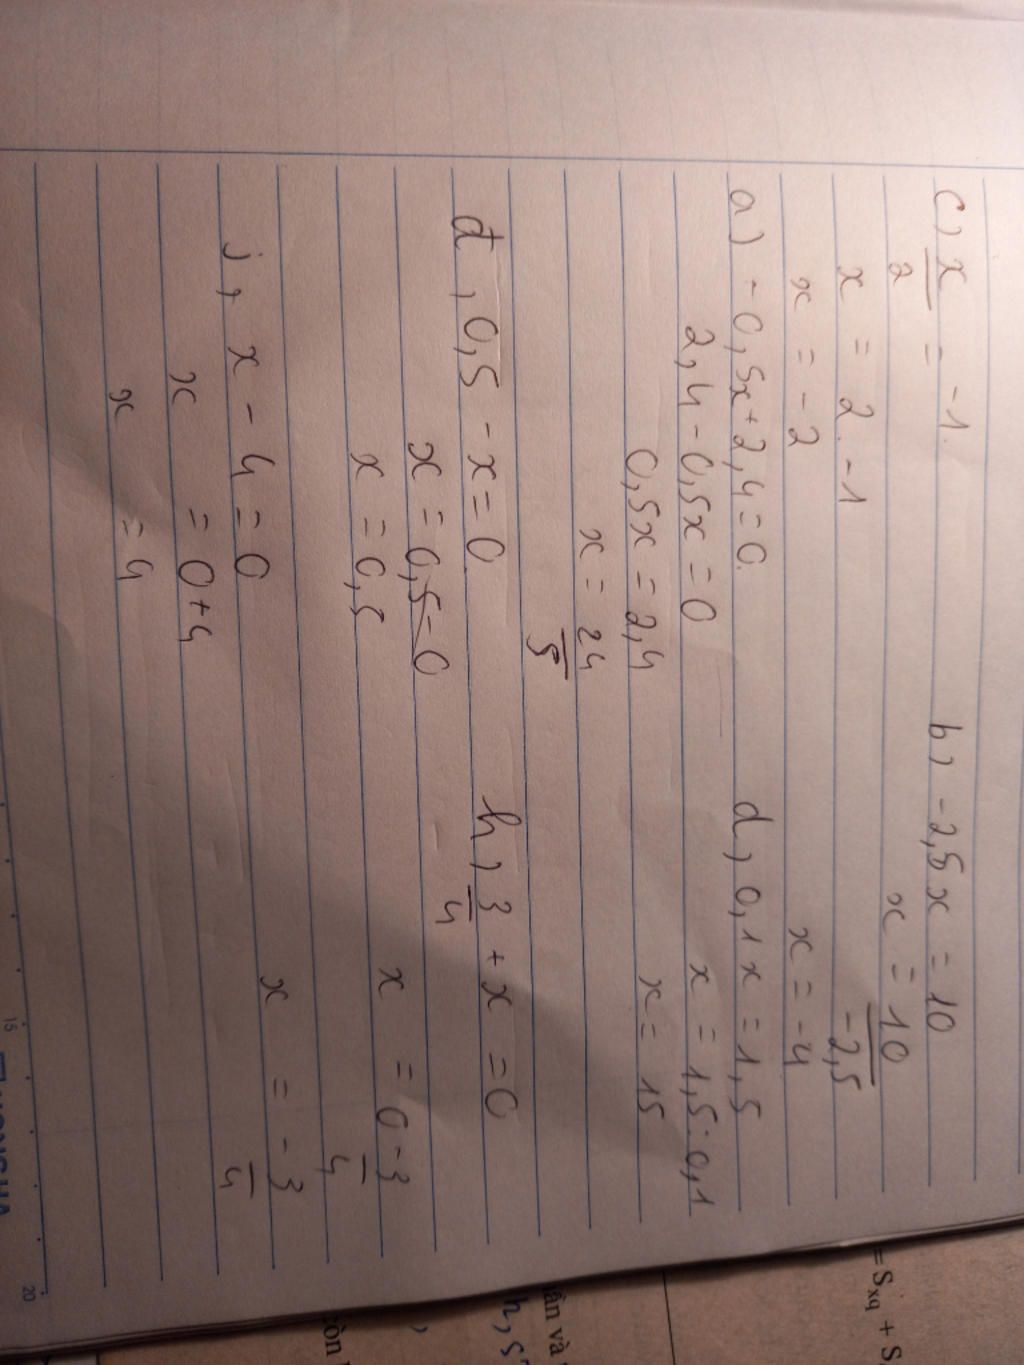 c) x/2 = -1
x = 2 . -1
x = -2
b) -2,5x = 10
x = 10/-2,5
x = -4
a) -0,5x + 2,4 = 0
2,4 - 0,5x = 0
0,5x = 2,4
x = 24/5
d, 0,1x = 1,5
x = 1,5 : 0,1
x = 15
đ, 0,5 - x = 0
x = 0,5 - 0
x = 0,5
h, 3/4 + x = 0
x = 0 - 3/4
x = -3/4
j, x - 4 = 0
x = 0 + 4
x = 4
15
20
= Sxq + S
và
h, 5